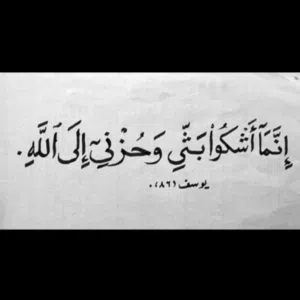 إِنَّمَآ أَشْكُوا۟ بَثِّي وَحُزْنِيٓ إِلَى ٱللَّهِ .
يوسف (٨٦).